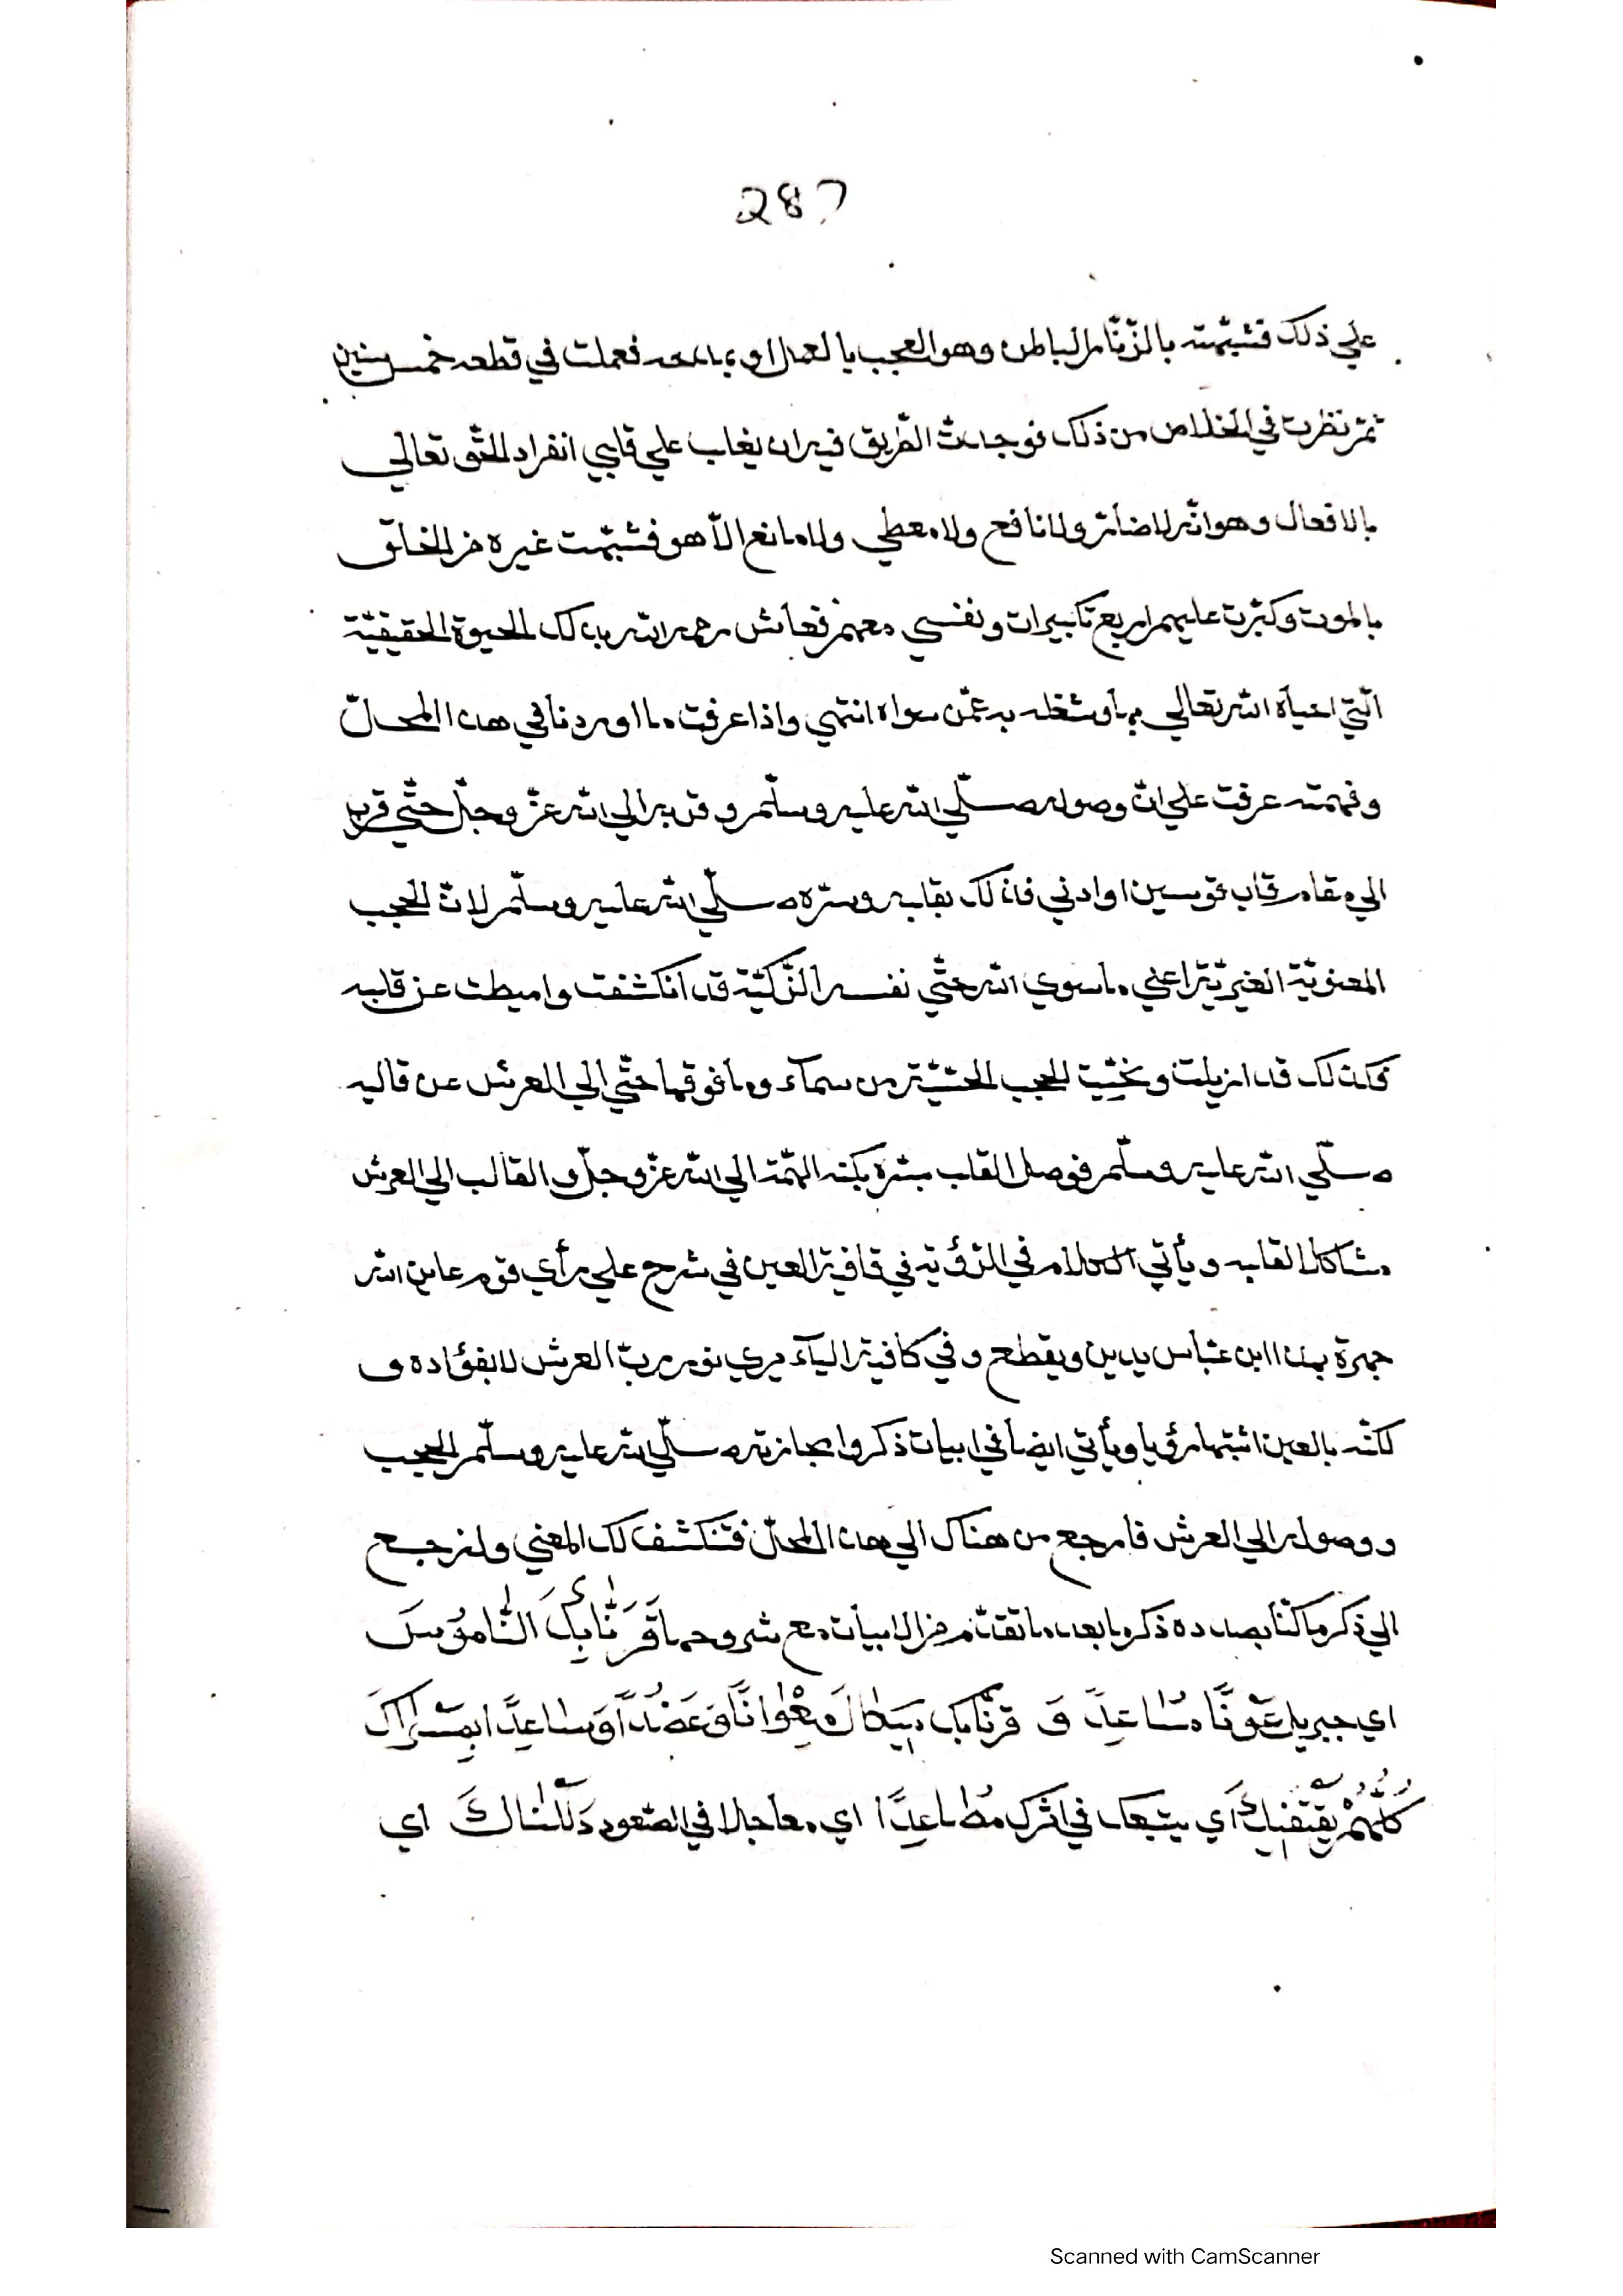 287
علي ذلك فشبّهته بالزّنّار الباطن وهو العجب بالعمل او فعملت في قطعه خمس سنين
ثمّ نظرت في الخلاص من ذلك فوجدت الطّريق فيه ان يغلب علي قلبي انفراد الحقّ تعالي
بالافعال وهو انّه لا ضارّ ولا نافع ولا معطي ولا مانع الّا هو فشبّهت غيره من الخلق
بالموت وكبّرت عليهم اربع تكبيرات ونفسي معهم فعاش رحمه الله بذلك الحيوة الحقيقيّة
الّتي احياه الله تعالي بها وشغله به عمّن سواه انتهي واذا عرفت ما اوردنا في هذا المحلّ
وفهمته عرفت علي انّ وصوله صلّي الله عليه وسلّم وقربه الي الله عزّ وجلّ حتّي قربه
الي مقام قاب قوسين او ادني فذلك بقلبه وسرّه صلّي الله عليه وسلّم لانّ الحجب
المعنويّة الغيريّة اعني ما سوي الله حتّي نفسه الزّكيّة قد انكشفت واميطت عن قلبه
وكذلك قد ازيلت ونحّيت الحجب الحسّيّة من سمآء وما فوقها حتّي الي العرش عن قالبه
صلّي الله عليه وسلّم فوصل القلب بسرّه بكنه الهمّة الي الله عزّ وجلّ والقالب الي العرش
مشاكلا لقلبه ويأتي الكلام في الرّؤية في قافية العين في شرح علي رأي قوم عاين الله
جهرة بهذا ابن عبّاس يدين ويقطع وفي قافية اليآء يري نور ربّ العرش لا بفؤاده و
لكنّه بالعين اثبتها رؤيا ويأتي ايضا في ابيات ذكر مجازته صلّي الله عليه وسلّم الحجب
ووصوله الي العرش فارجع من هناك الي هذا المحلّ فتنكشف لك المعني ولنرجع
الي ذكر ما كنّا بصدده ذكر ما بعد ما تقدّم من الابيات مع شروحها قَرَنّٰا بِكَ النّٰامُوسَ
اي جبريل عَوْنًا مُسٰاعِدًا وَ قرنّا بك مِيكٰالَ مِعْوٰانًا وَعَضُدًا وَسٰاعِدًا اَبِسْرَاكَ
كُلُّهُمْ يَقْتَفِيكَ اَي يتبعك في اثرك مُصٰاعِدًا اي معاجلا في الصّعود دَلَلْنٰاكَ اي
Scanned with CamScanner